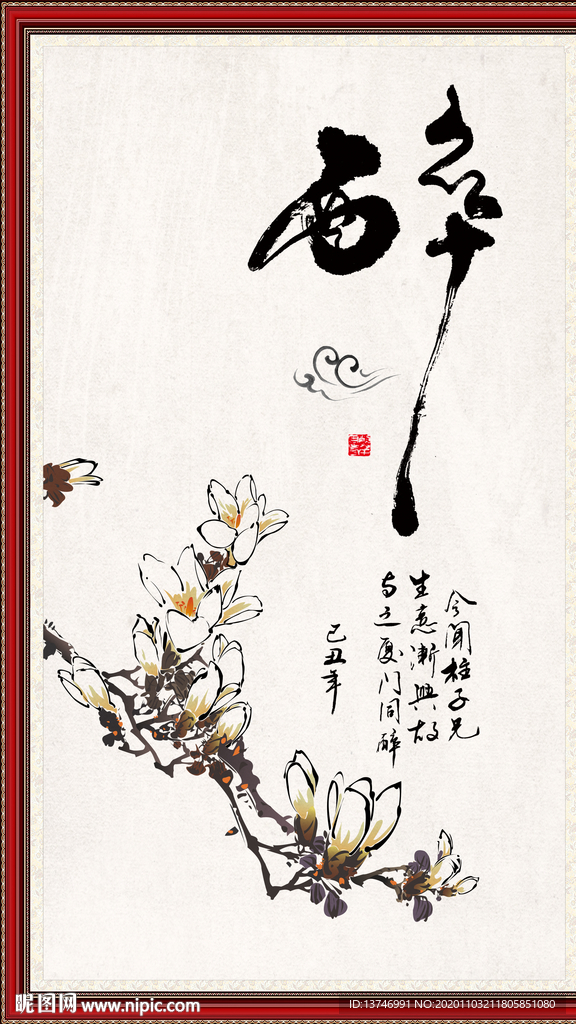 醉
今闻柱子兄
生意渐兴故
与之厦门同醉
己丑年
昵图网 www.nipic.com
ID:13746991 NO:20201103211805851080